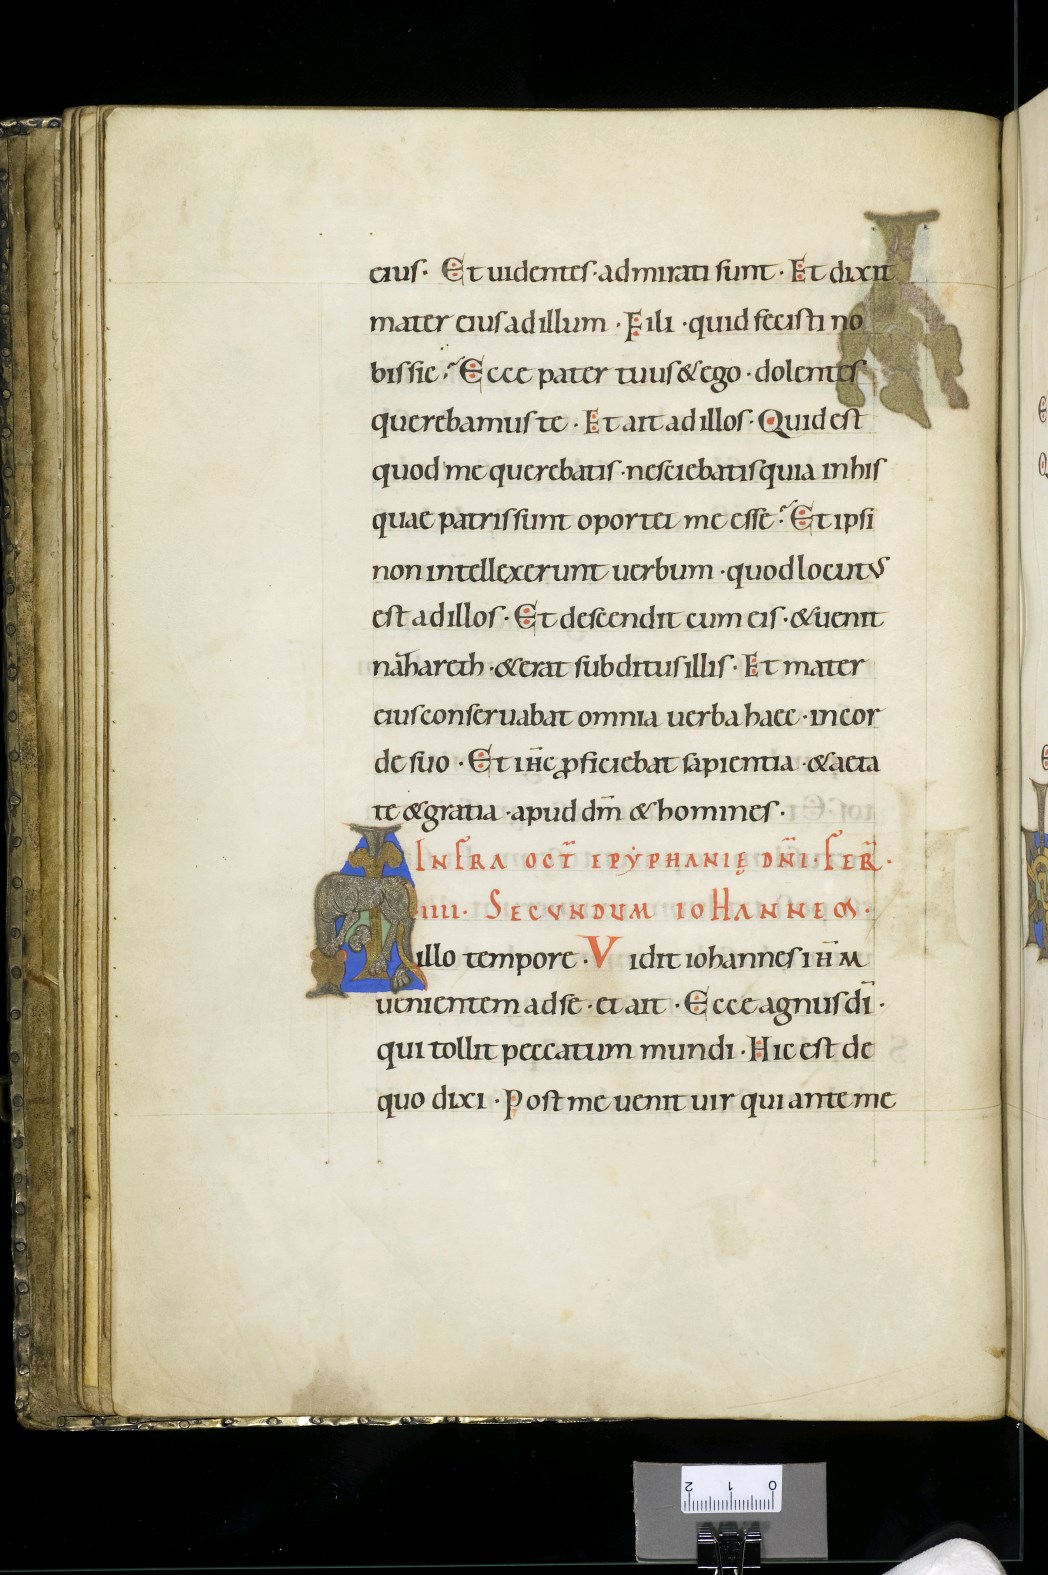 eius· Et uidentes·admirati sunt· Et dixit
mater eius ad illum · Fili ·quid fecisti no
bis sic? Ecce pater tuus & ego · dolentes
querebamus te · Et ait ad illos· Quid est
quod me querebatis ·nesciebatis quia in his
quae patris sunt oportet me esse? Et ipsi
non intellexerunt uerbum ·quod locutus
est ad illos· Et descendit cum eis ·& uenit
nāhareth ·& erat subditus illis· Et mater
eius conseruabat omnia uerba haec ·in cor
de suo · Et ih̅c ꝓficiebat sapientia ·& aeta
te & gratia ·apud dm̅ & homines·
INFRA OCT̅ EPẎPHANIĘ DN̅I· FER̅·
IIII· SECUNDUM IOHANNEM·
In illo tempore · Vidit iohannes ih̅m
uenientem ad se ·et ait · Ecce agnus di̅ ·
qui tollit peccatum mundi · Hic est de
quo dixi · Post me uenit uir qui ante me
2 1 0